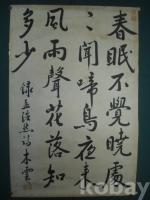 春眠不覺曉處
〻聞啼鳥夜來
風雨聲花落知
多少
錄孟浩然詩 木雲
kobay